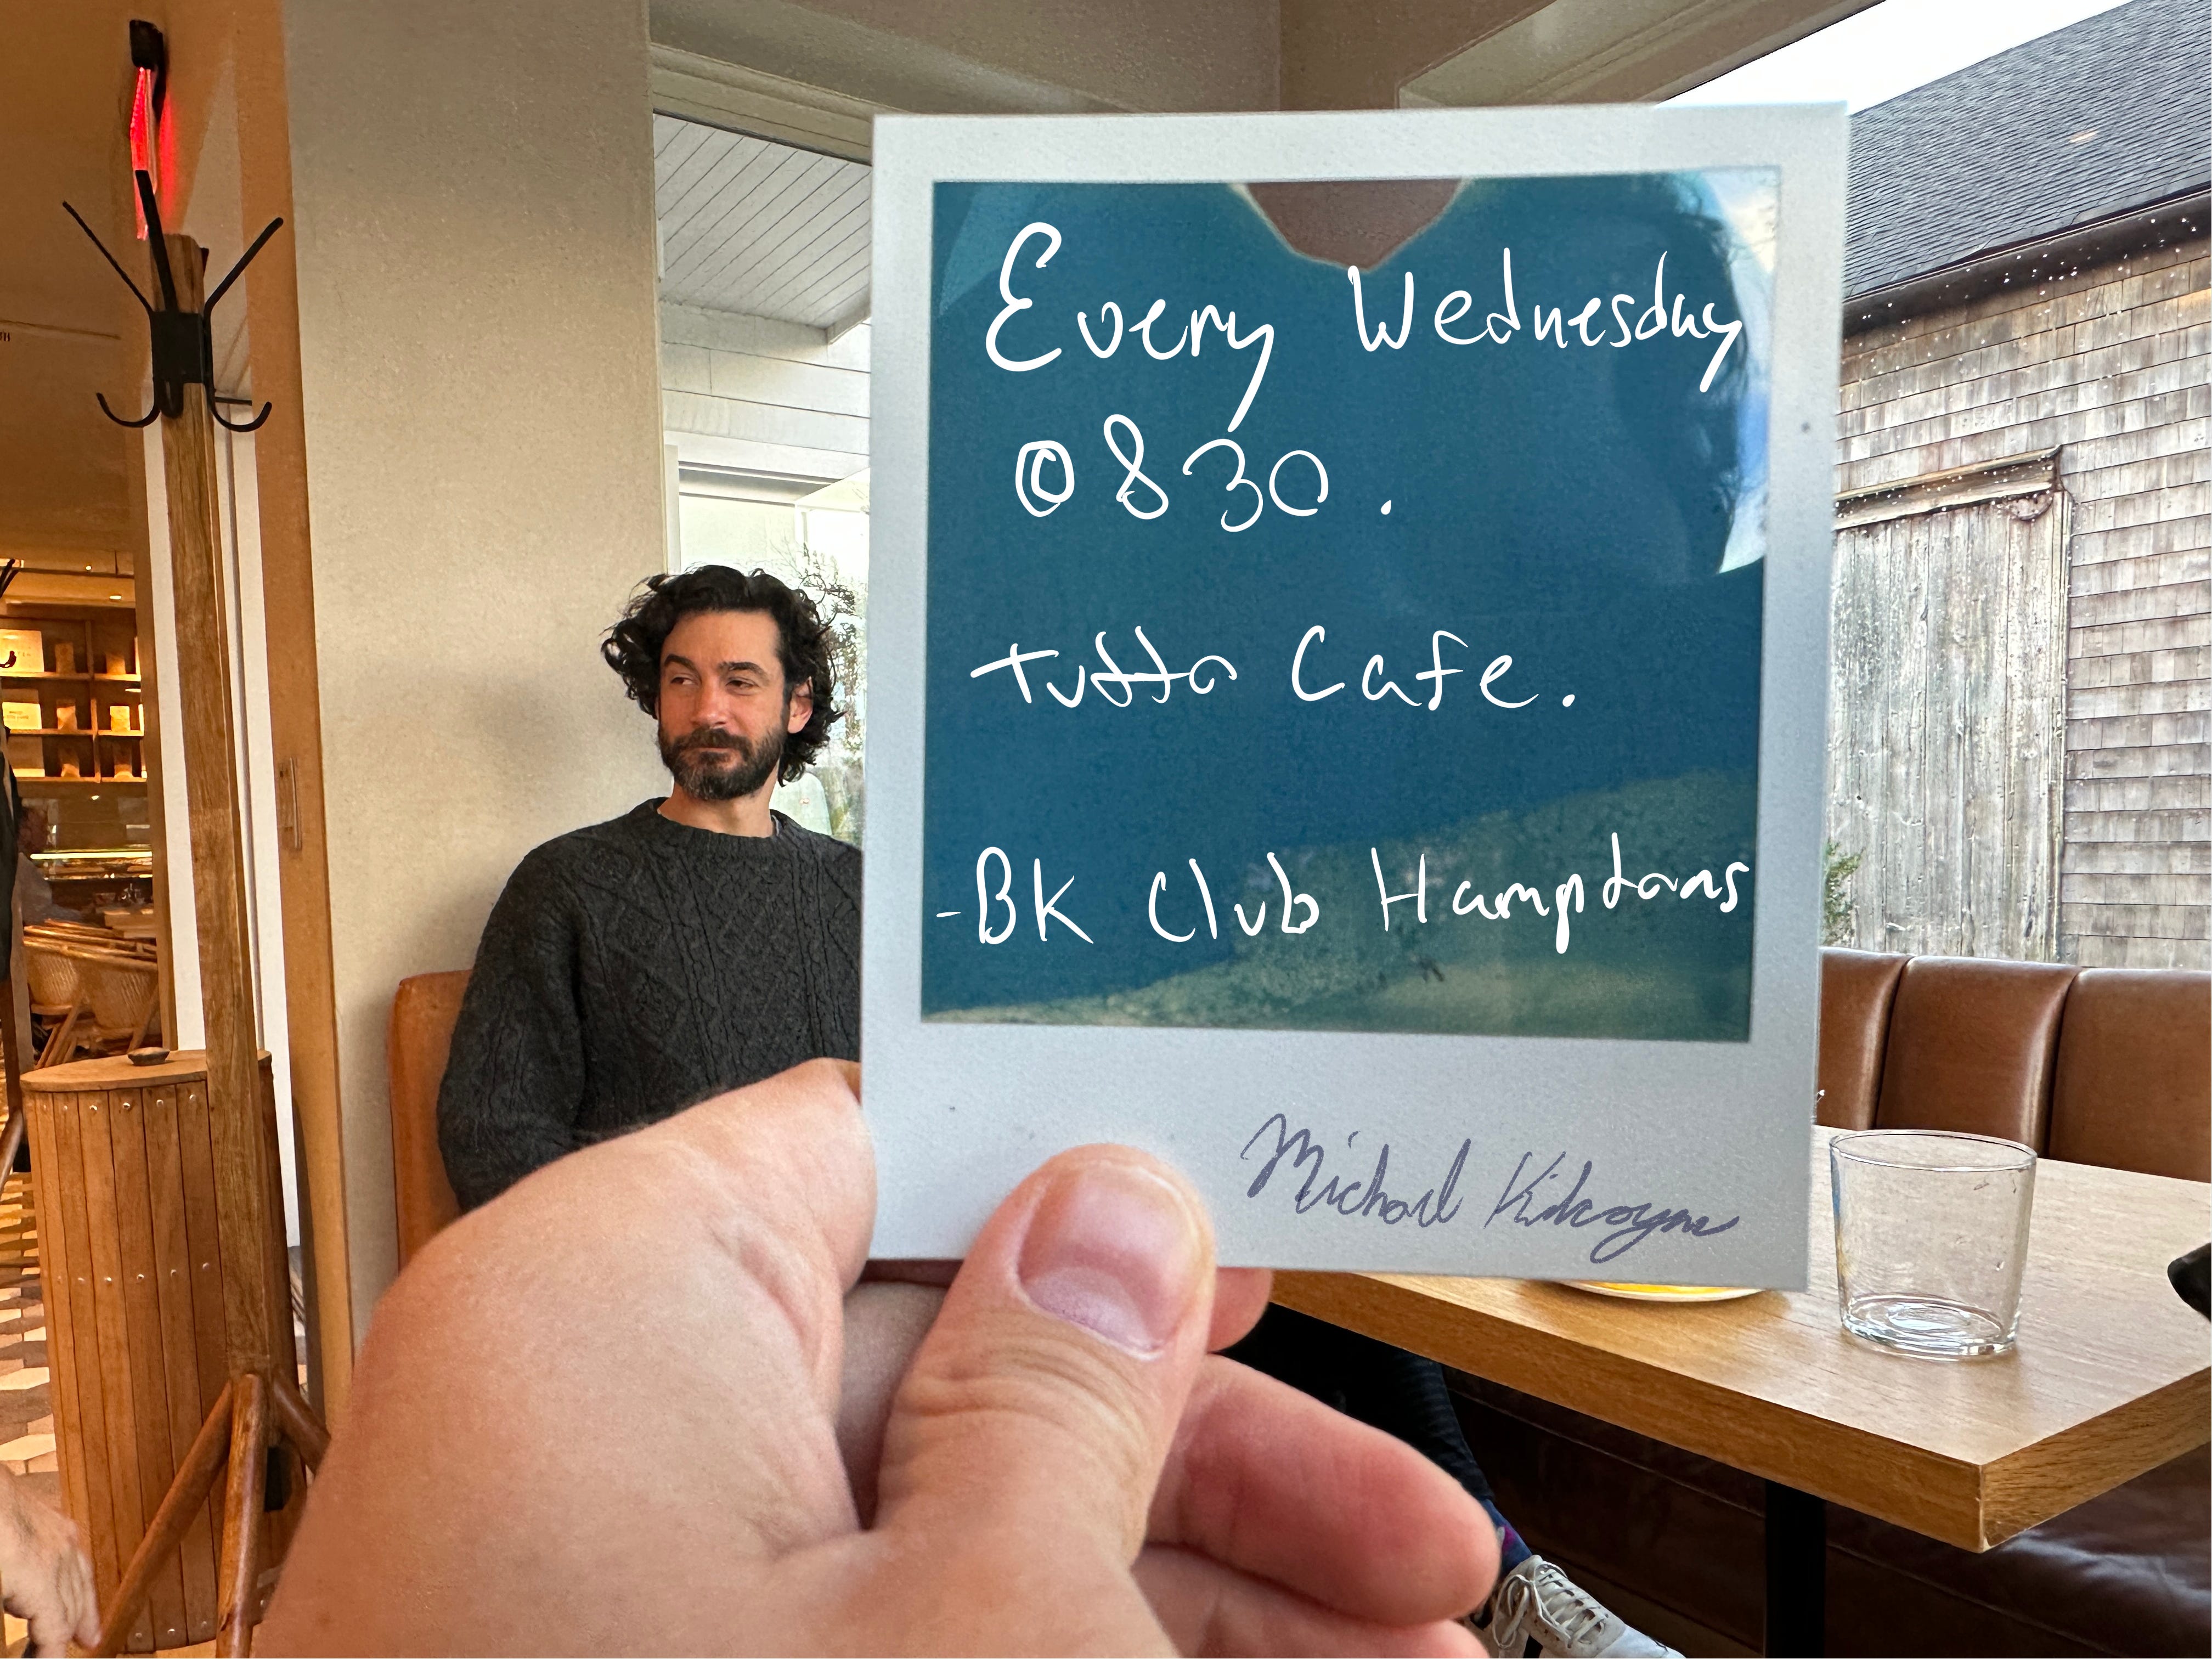 Every Wednesday
@ 830.
Tutto Cafe.
-BK Club Hamptons
Michael Kilcoyne